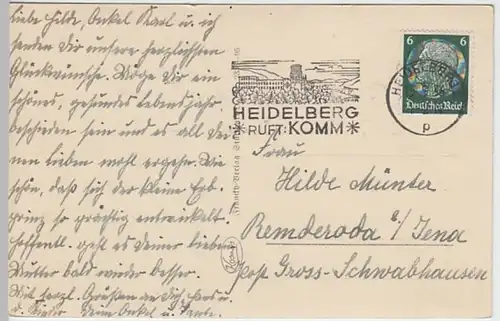 Liebe Hilde, Onkel Karl u. ich
senden Dir unsere herzlichsten
Glückwünsche. Möge Dir ein
schönes, gesundes Lebensjahr
beschieden sein und es all dei-
nen Lieben wohl ergehn. Wie
schön, daß sich der kleine Erb-
prinz so prächtig entwickelt.
Hoffentl. geht es Deiner lieben
Mutter bald wieder besser.
Mit herzl. Grüßen an Dich,
u. d. Kinder Deine Onkel u. Tante.
HEIDELBERG
RUFT: KOMM
HEIDELBERG
p
6 6
Deutsches Reich
Frau
Hilde Münter
Remderoda b/ Jena
Post Gross-Schwabhausen